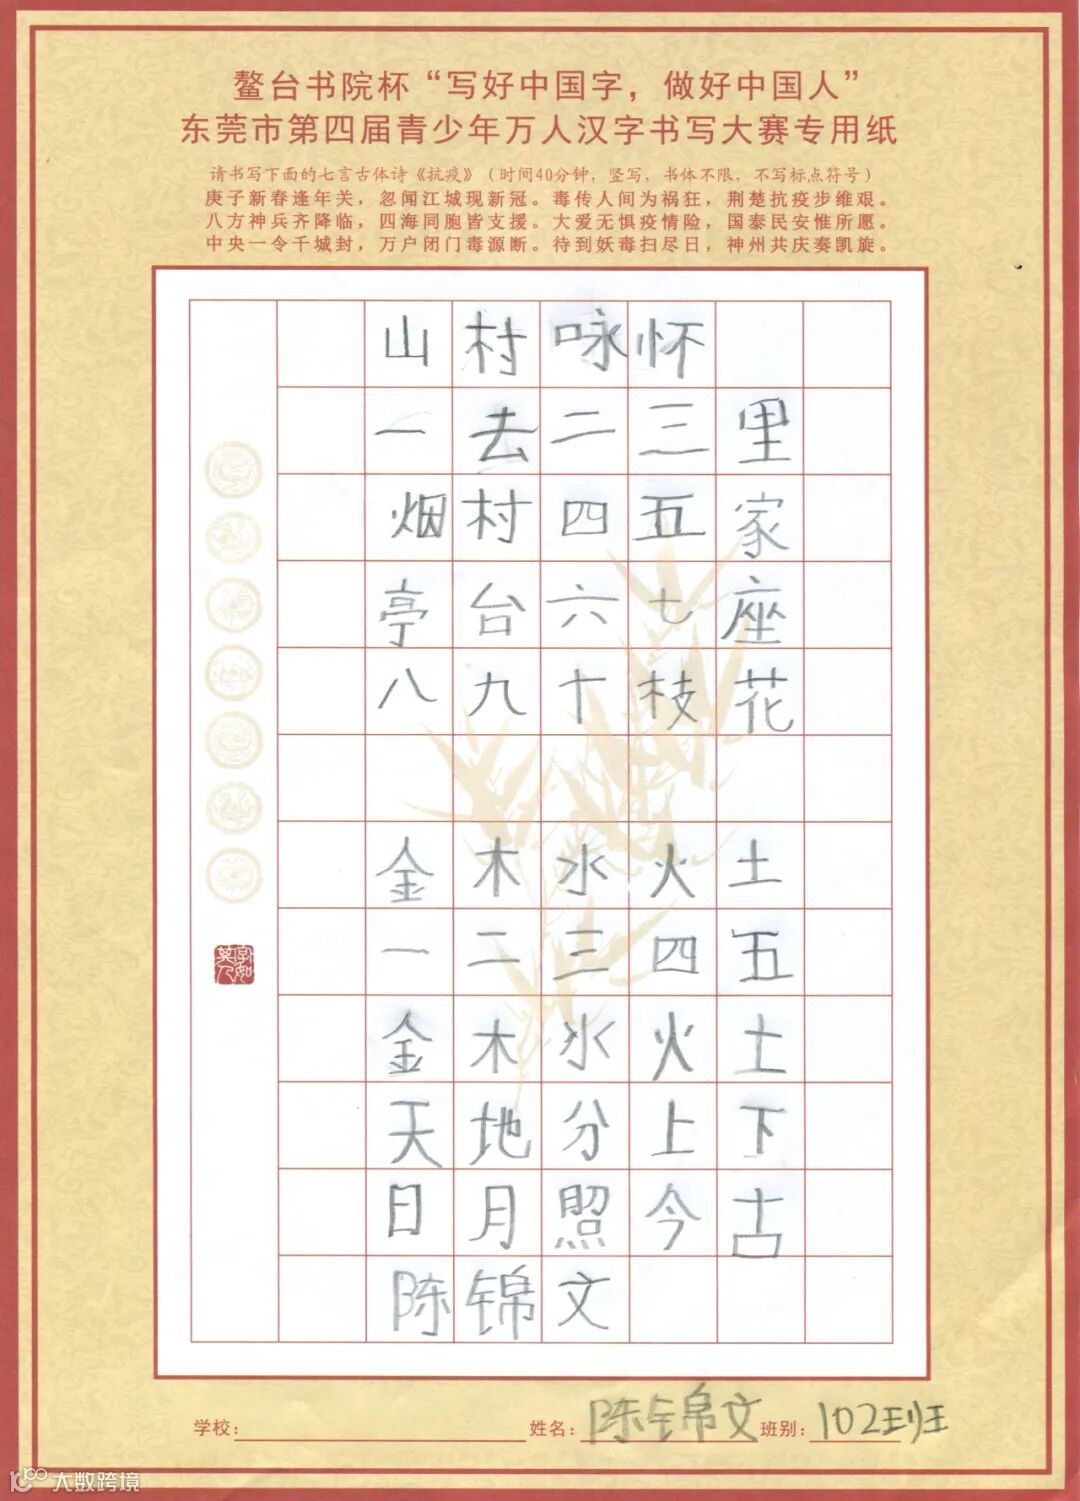 鳌台书院杯“写好中国字，做好中国人”
东莞市第四届青少年万人汉字书写大赛专用纸
请书写下面的七言古体诗《抗疫》（时间40分钟，竖写，书体不限，不写标点符号）
庚子新春逢年关，忽闻江城现新冠。毒传人间为祸狂，荆楚抗疫步维艰。
八方神兵齐降临，四海同胞皆支援。大爱无惧疫情险，国泰民安惟所愿。
中央一令千城封，万户闭门毒源断。待到妖毒扫尽日，神州共庆奏凯旋。
山村咏怀
一去二三里
烟村四五家
亭台六七座
八九十枝花
金木水火土
一二三四五
金木水火土
天地分上下
日月照今古
陈锦文
学校： 姓名：陈锦文 班别：102班
大数跨境